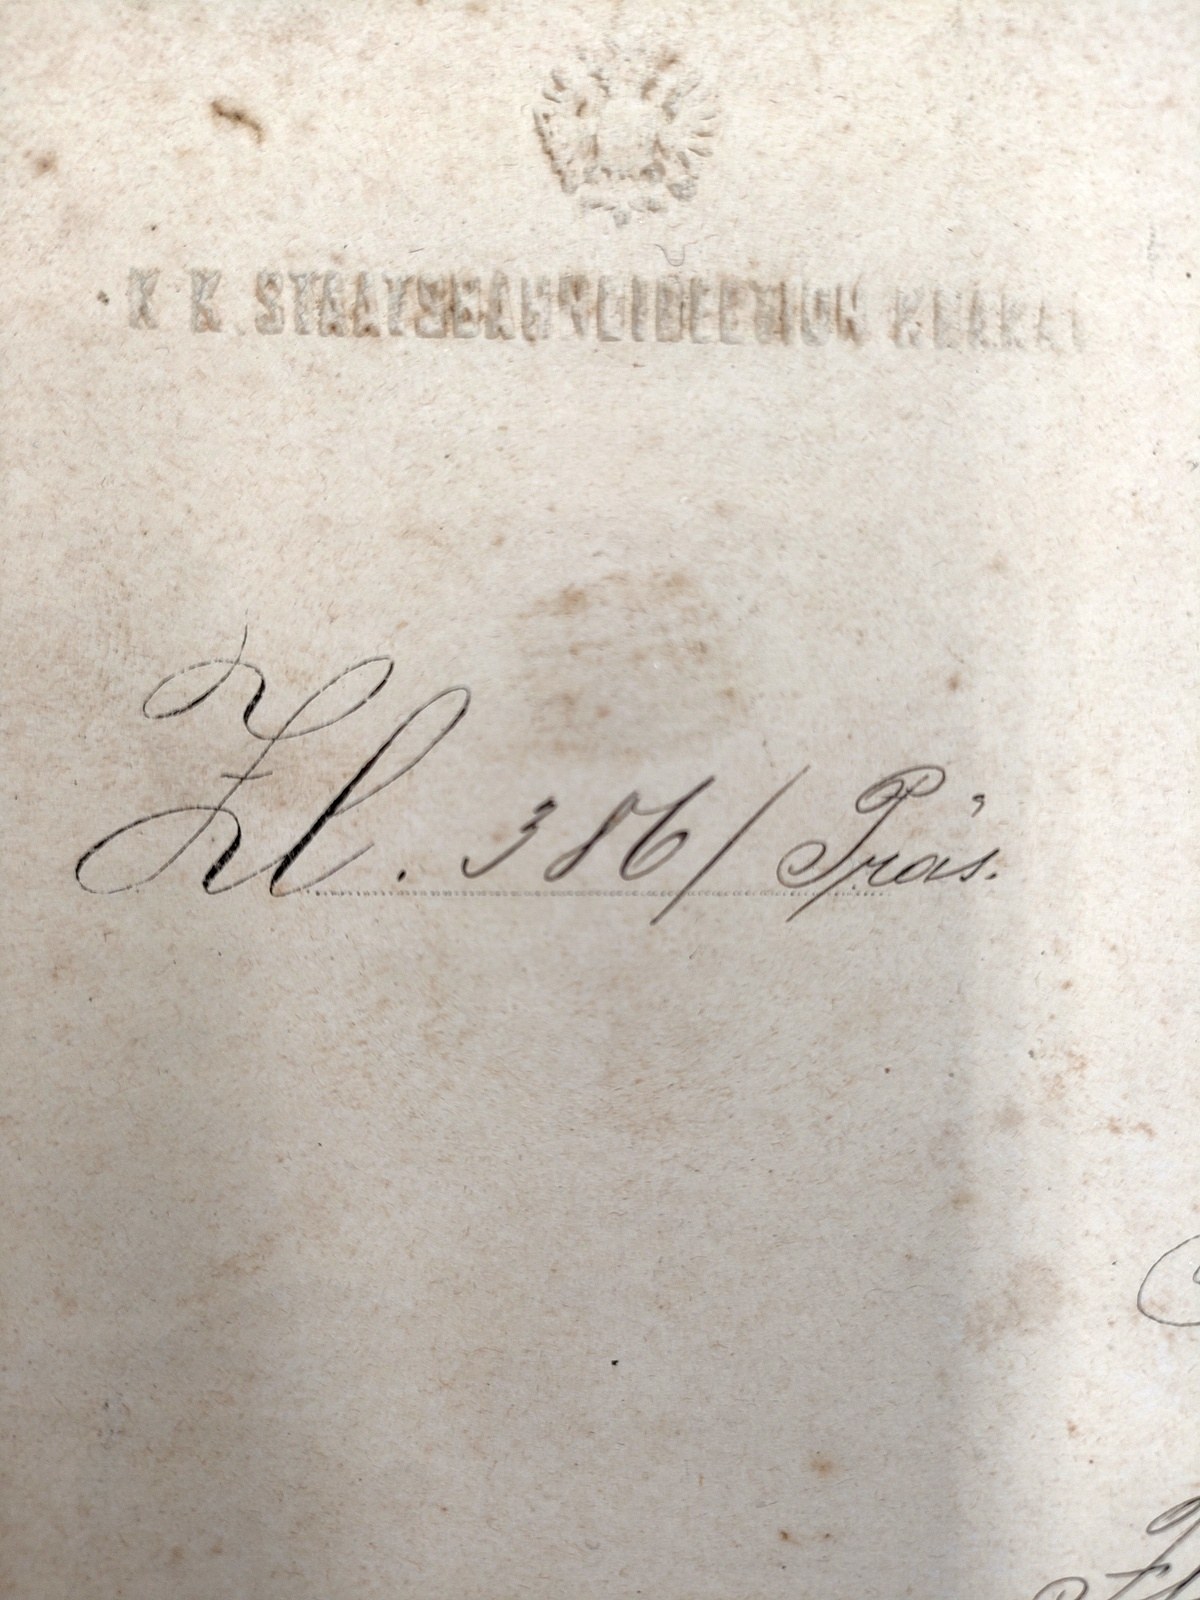 K. K. STAATSBAHNDIRECTION KRAKAU
Zl. 386/Präs.